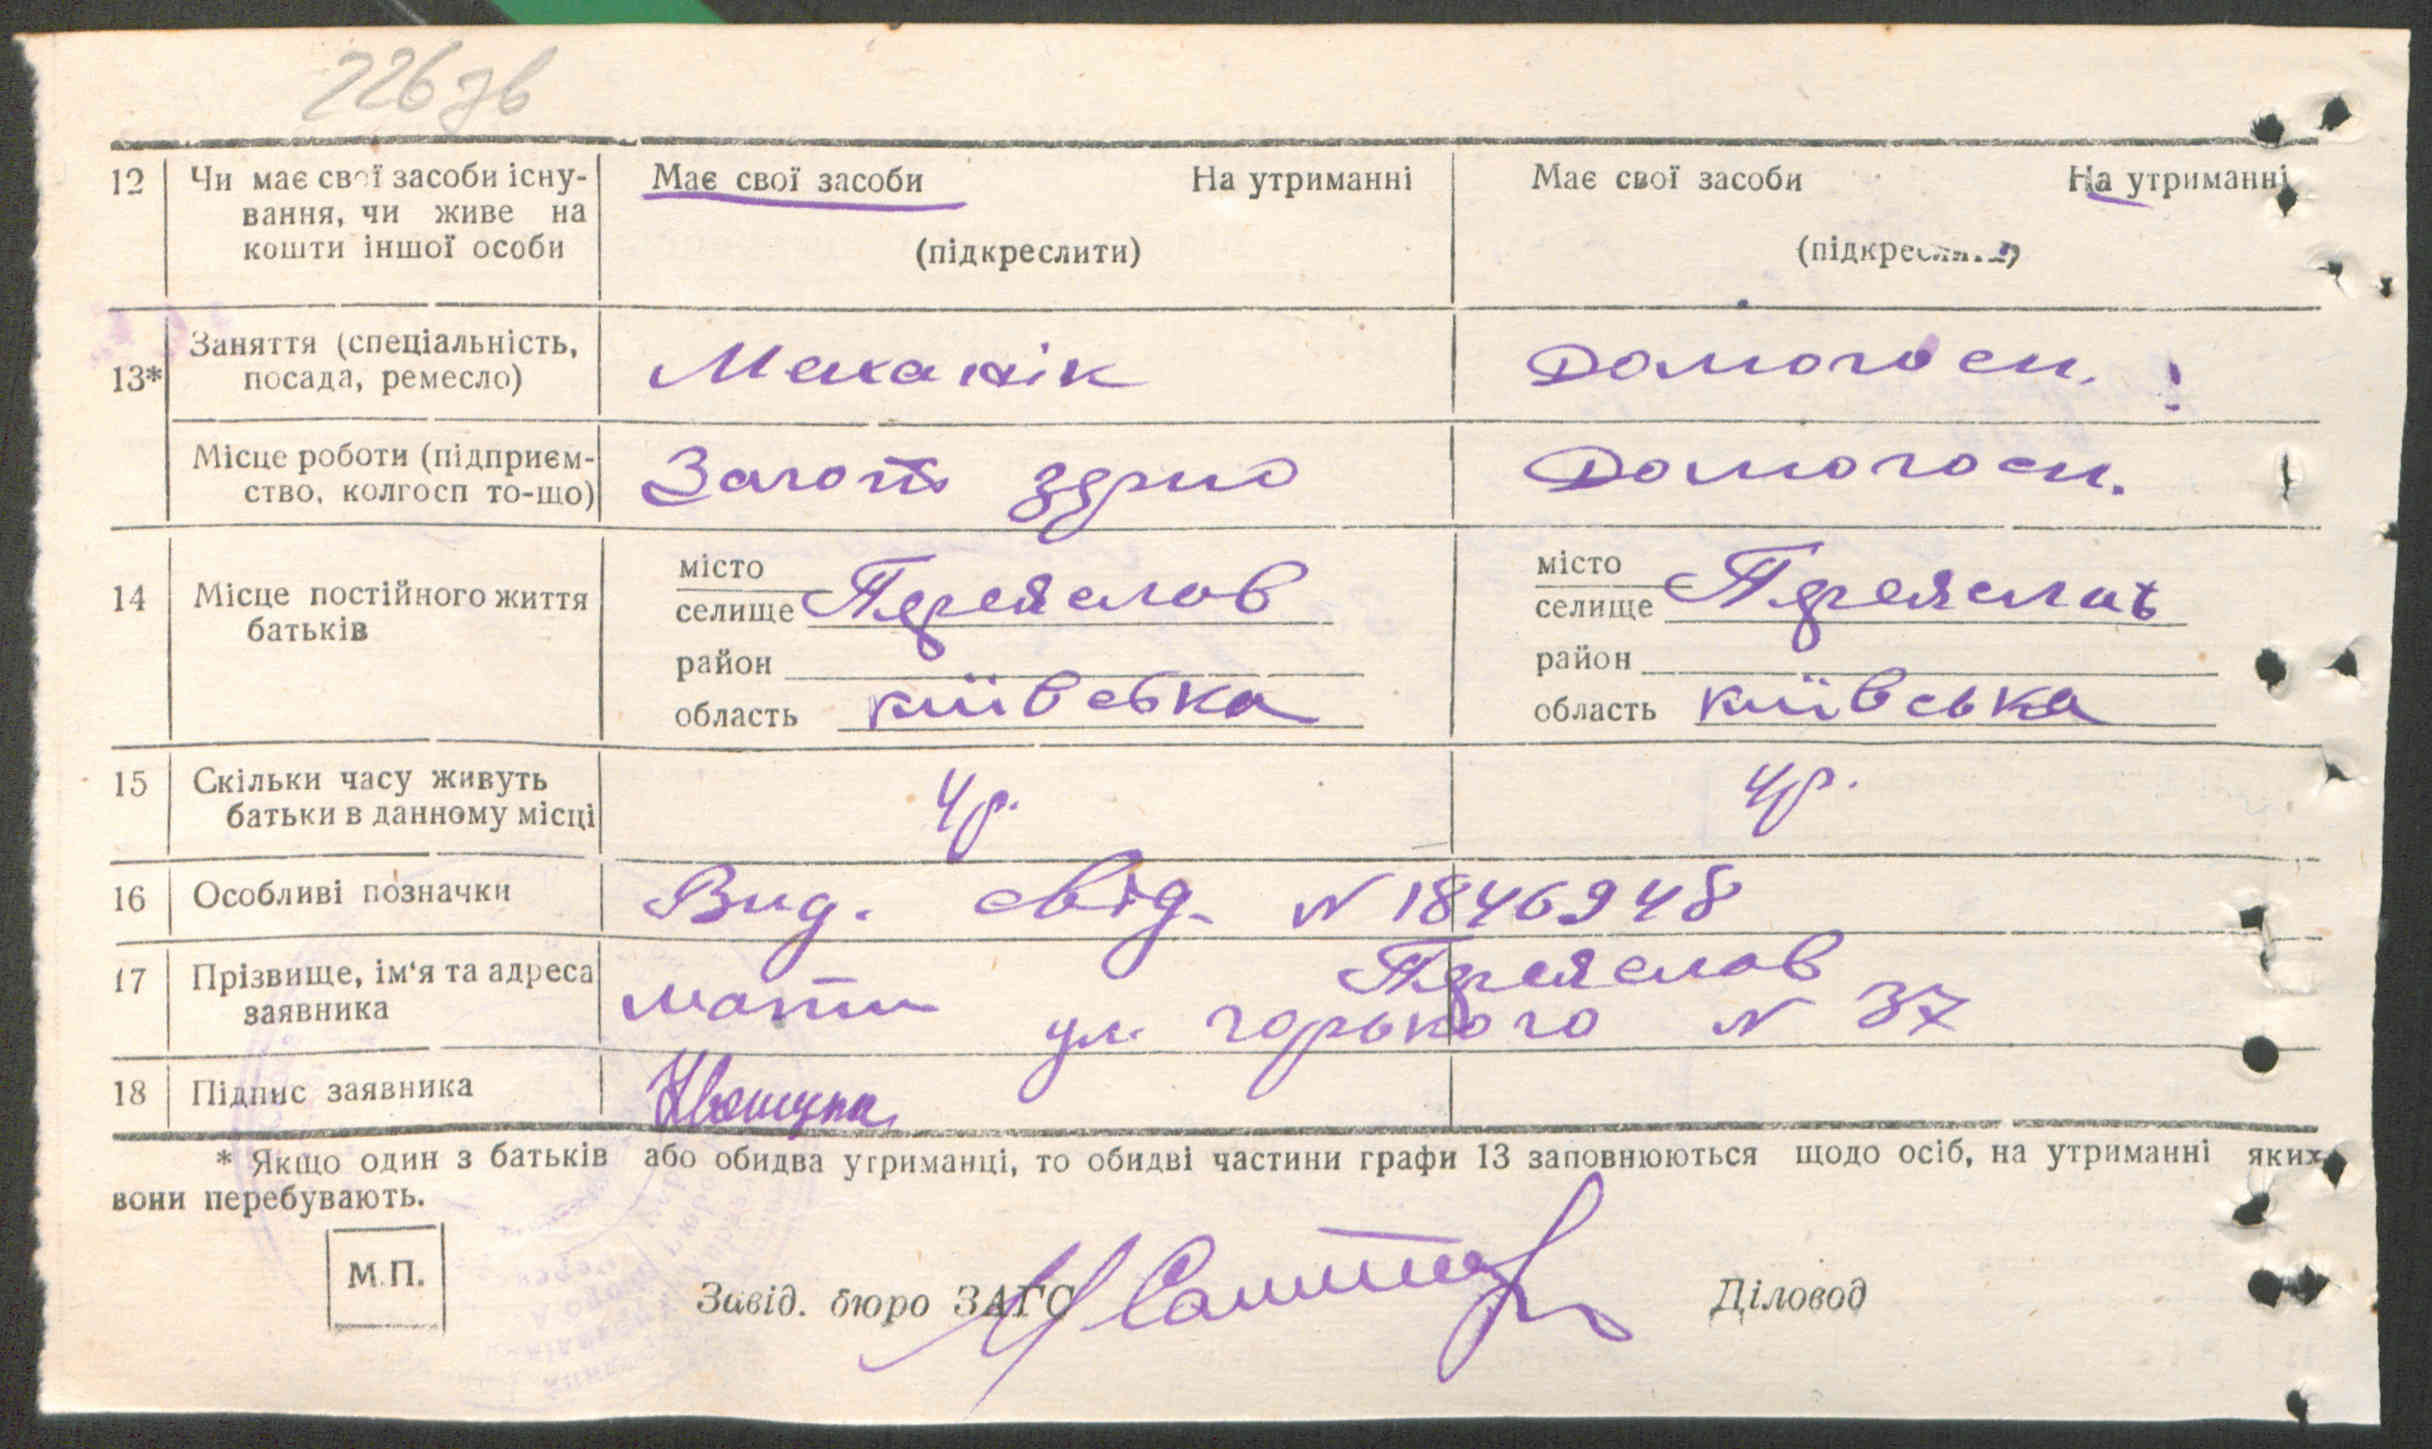 226 зв
12 Чи має свої засоби існу- Має свої засоби На утриманні Має свої засоби На утриманні
вання, чи живе на
кошти іншої особи (підкреслити) (підкреслити)
Заняття (спеціальність,
13* посада, ремесло) Механік Домогосп.
Місце роботи (підприєм-
ство, колгосп то-що) Загот зерно Домогосп.
місто місто
14 Місце постійного життя селище Переяслав селище Переяслав
батьків
район район
область київська область київська
15 Скільки часу живуть 4 р. 4 р.
батьки в данному місці
16 Особливі позначки Вид. свід. N 1846948
17 Прізвище, ім'я та адреса мати Переяслав
заявника ул. горького N 37
18 Підпис заявника
* Якщо один з батьків або обидва утриманці, то обидві частини графи 13 заповнюються щодо осіб, на утриманні яких
вони перебувають.
М.П.
Завід. бюро ЗАГС Діловод